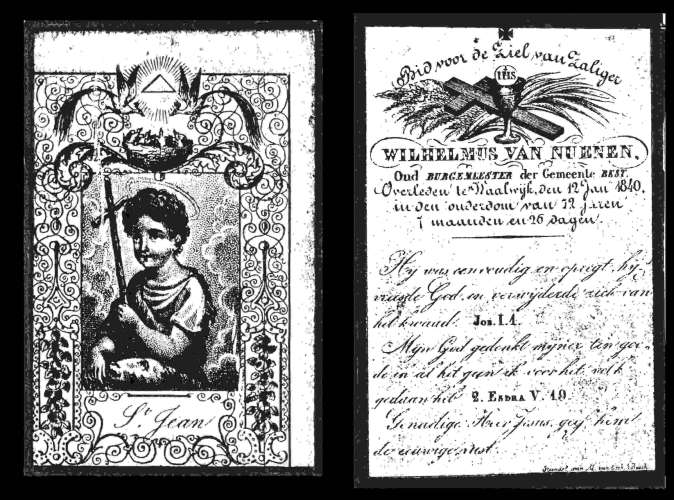 St Jean
Bid voor de Ziel van Zaliger
IHS
WILHELMUS VAN NUENEN,
Oud BURGEMEESTER der Gemeente BEST.
Overleden te Waalwijk, den 12 Jan 1840,
in den ouderdom van 72 jaren
7 maanden en 26 dagen.
Hy was eenvoudig en opregt, hy
vreesde God, en verwyderde zich van
het kwaad. Job. I. 1.
Myn God gedenkt myner ten goe-
de in al het geen ik voor het volk
gedaan heb 2. Esdra V. 19.
Genadige Heer Jesus, geef hem
de eeuwige rust.